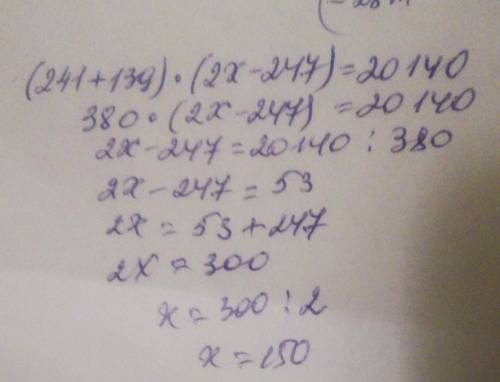 (241+139)·(2x-247)=20140
380·(2x-247)=20140
2x-247=20140:380
2x-247=53
2x=53+247
2x=300
x=300:2
x=150